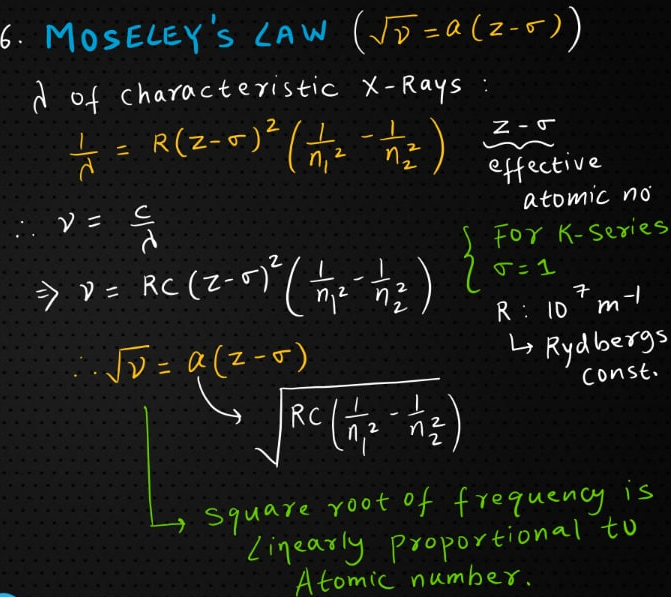 6. MOSELEY'S LAW (√ν = a(z-σ))
λ of characteristic X-Rays :
1/λ = R(z-σ)² (1/n₁² - 1/n₂²)
z-σ
effective
atomic no
∴ ν = c/λ
{ For K-Series
σ = 1
⇒ ν = RC (z-σ)² (1/n₁² - 1/n₂²)
R : 10⁷ m⁻¹
↳ Rydbergs
const.
∴ √ν = a(z-σ)
√(RC (1/n₁² - 1/n₂²))
↳ square root of frequency is
Linearly proportional to
Atomic number.